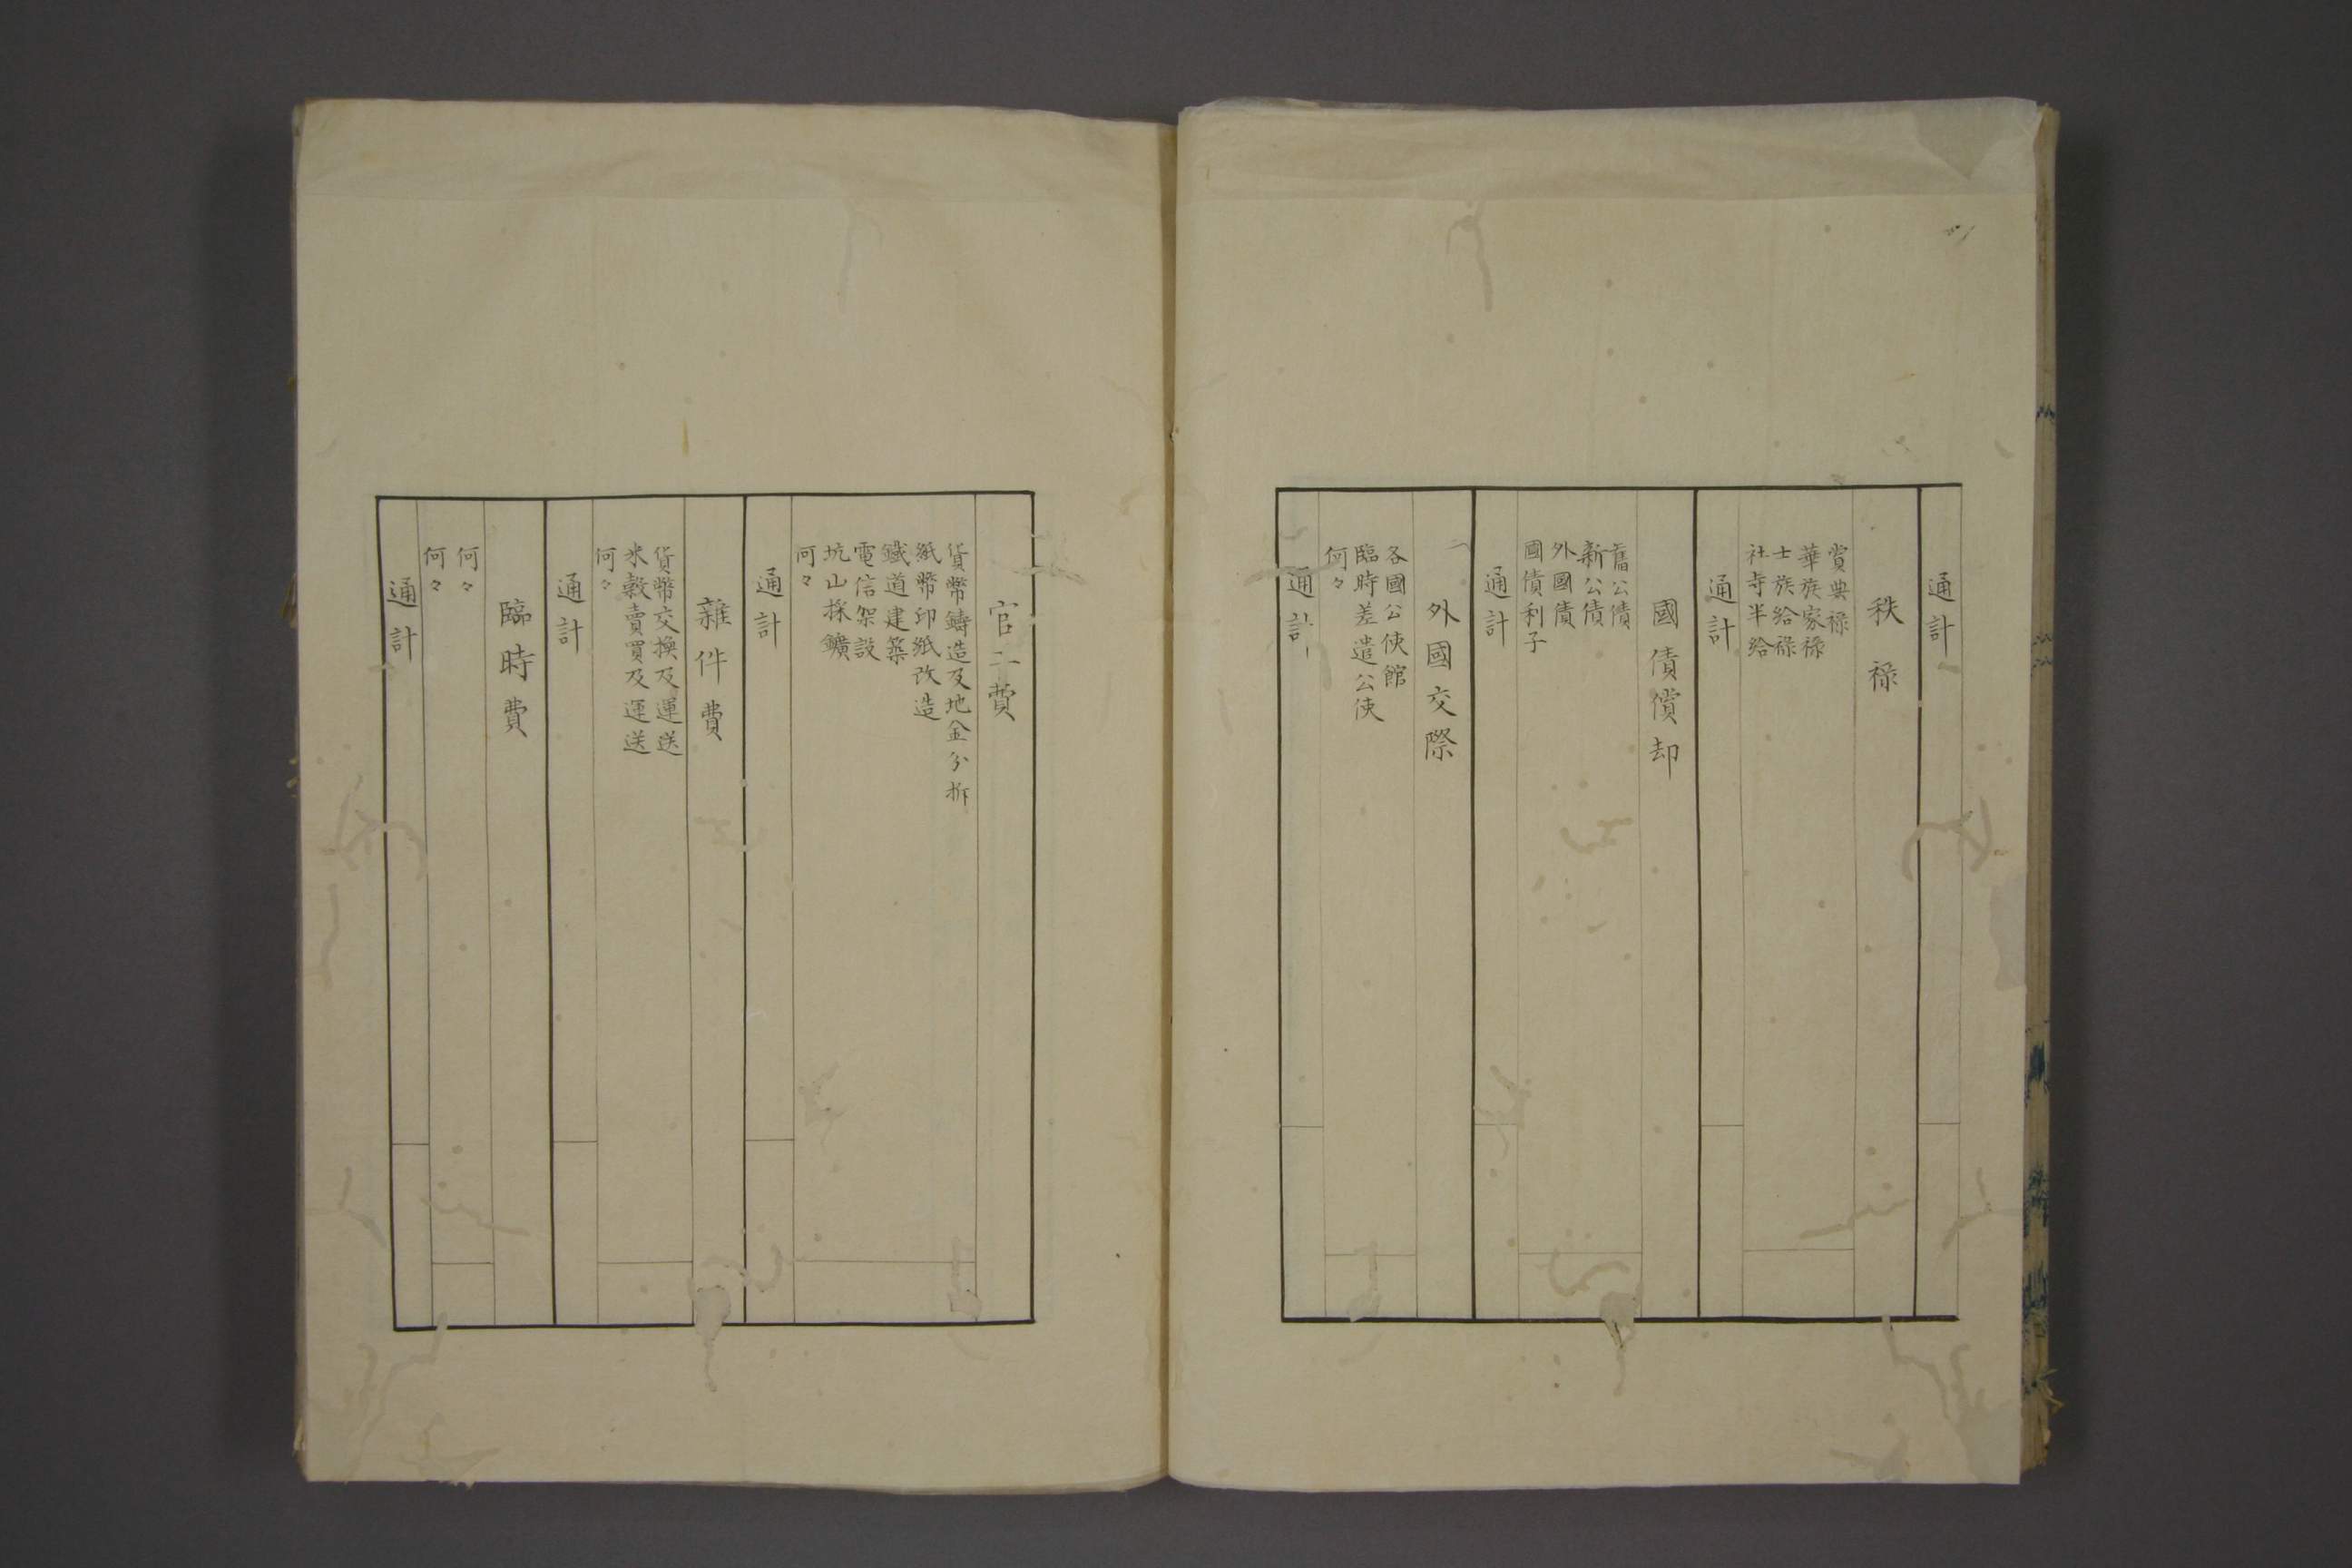 通計
秩禄
賞典禄
華族家禄
士族給禄
社寺半給
通計
國債償却
舊公債
新公債
外國債
國債利子
通計
外國交際
各國公使館
臨時差遣公使
何々
通計
官工費
貨幣鑄造及地金分析
紙幣印紙改造
鐵道建築
電信架設
坑山採鑛
何々
通計
雜件費
貨幣交換及運送
米穀賣買及運送
何々
通計
臨時費
何々
何々
通計